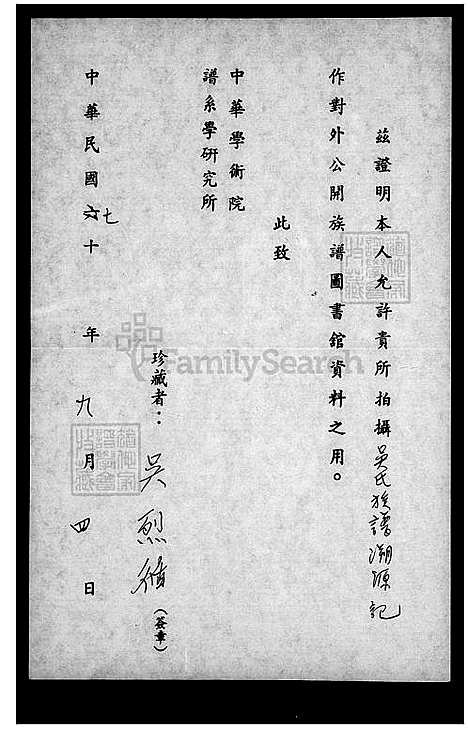 茲證明本人允許貴所拍攝吳氏族譜溯源記
作對外公開族譜圖書館資料之用。
此致
中華學術院
譜系學研究所
珍藏者：吳烈脩(簽章)
中華民國六十七年九月四日
FamilySearch